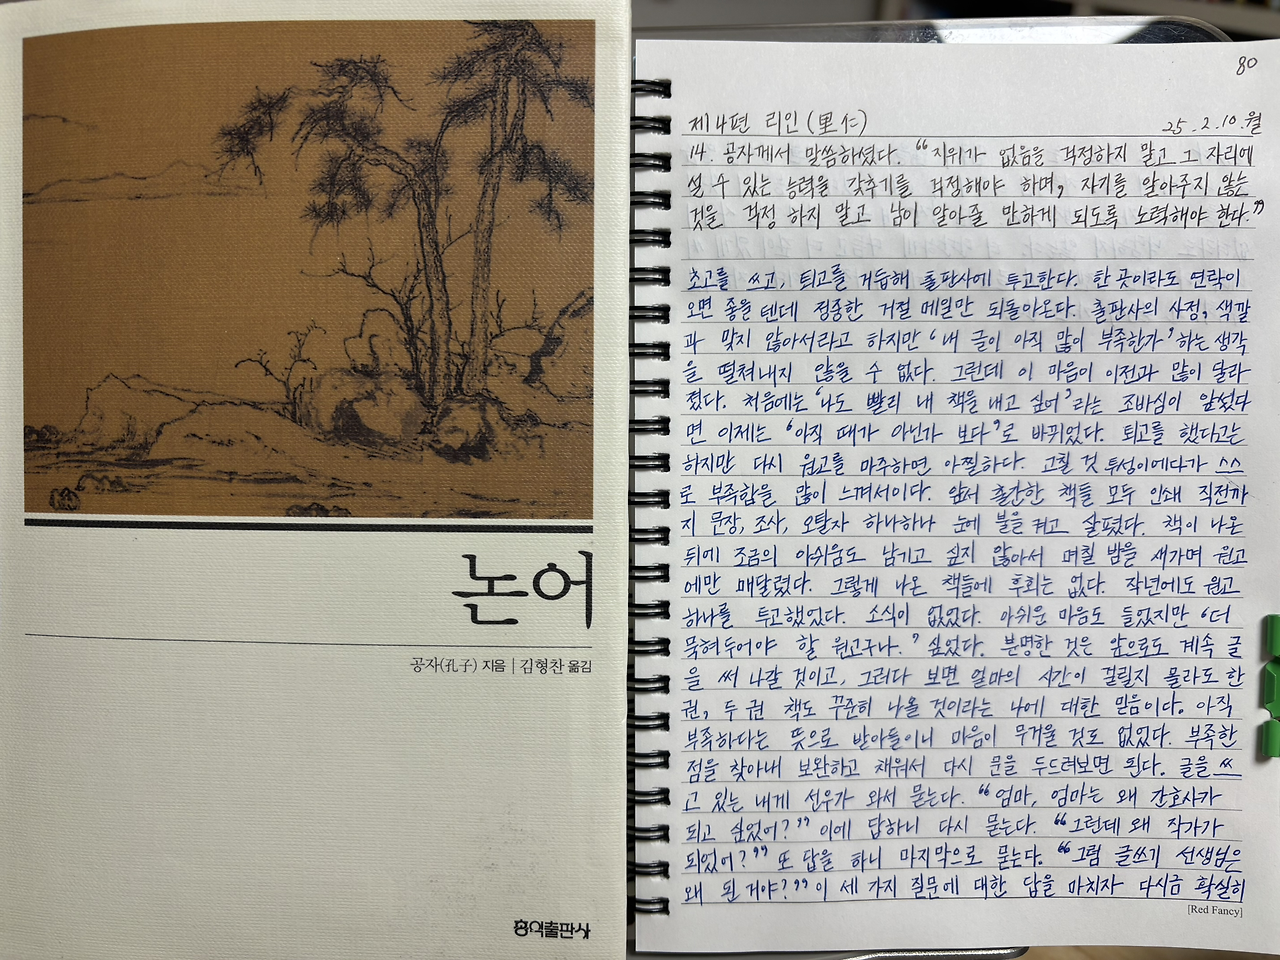 논어
공자(孔子) 지음 | 김형찬 옮김
홍익출판사
80
제4편 리인 (里仁)
25. 2. 10. 월
14. 공자께서 말씀하셨다. "지위가 없음을 걱정하지 말고 그 자리에
설 수 있는 능력을 갖추기를 걱정해야 하며, 자기를 알아주지 않는
것을 걱정 하지 말고 남이 알아줄 만하게 되도록 노력해야 한다."
초고를 쓰고, 퇴고를 거듭해 출판사에 투고한다. 한 곳이라도 연락이
오면 좋을 텐데 정중한 거절 메일만 되돌아온다. 출판사의 사정, 색깔
과 맞지 않아서라고 하지만 '내 글이 아직 많이 부족한가' 하는 생각
을 떨쳐내지 않을 수 없다. 그런데 이 마음이 이전과 많이 달라
졌다. 처음에는 '나도 빨리 내 책을 내고 싶어' 라는 조바심이 앞섰다
면 이제는 '아직 때가 아닌가 보다'로 바뀌었다. 퇴고를 했다고는
하지만 다시 원고를 마주하면 아찔하다. 고칠 것 투성이에다가 스스
로 부족함을 많이 느껴서이다. 앞서 출간한 책들 모두 인쇄 직전까
지 문장, 조사, 오탈자 하나하나 눈에 불을 켜고 살폈다. 책이 나온
뒤에 조금의 아쉬움도 남기고 싶지 않아서 며칠 밤을 새가며 원고
에만 매달렸다. 그렇게 나온 책들에 후회는 없다. 작년에도 원고
하나를 투고했었다. 소식이 없었다. 아쉬운 마음도 들었지만 '더
묵혀두어야 할 원고구나.' 싶었다. 분명한 것은 앞으로도 계속 글
을 써 나갈 것이고, 그러다 보면 얼마의 시간이 걸릴지 몰라도 한
권, 두 권 책도 꾸준히 나올 것이라는 나에 대한 믿음이다. 아직
부족하다는 뜻으로 받아들이니 마음이 무거울 것도 없었다. 부족한
점을 찾아내 보완하고 채워서 다시 문을 두드려보면 된다. 글을 쓰
고 있는 내게 선우가 와서 묻는다. "엄마, 엄마는 왜 간호사가
되고 싶었어?" 이에 답하니 다시 묻는다. "그런데 왜 작가가
되었어?" 또 답을 하니 마지막으로 묻는다. "그럼 글쓰기 선생님은
왜 된거야?" 이 세 가지 질문에 대한 답을 마치자 다시금 확실히
[Red Fancy]